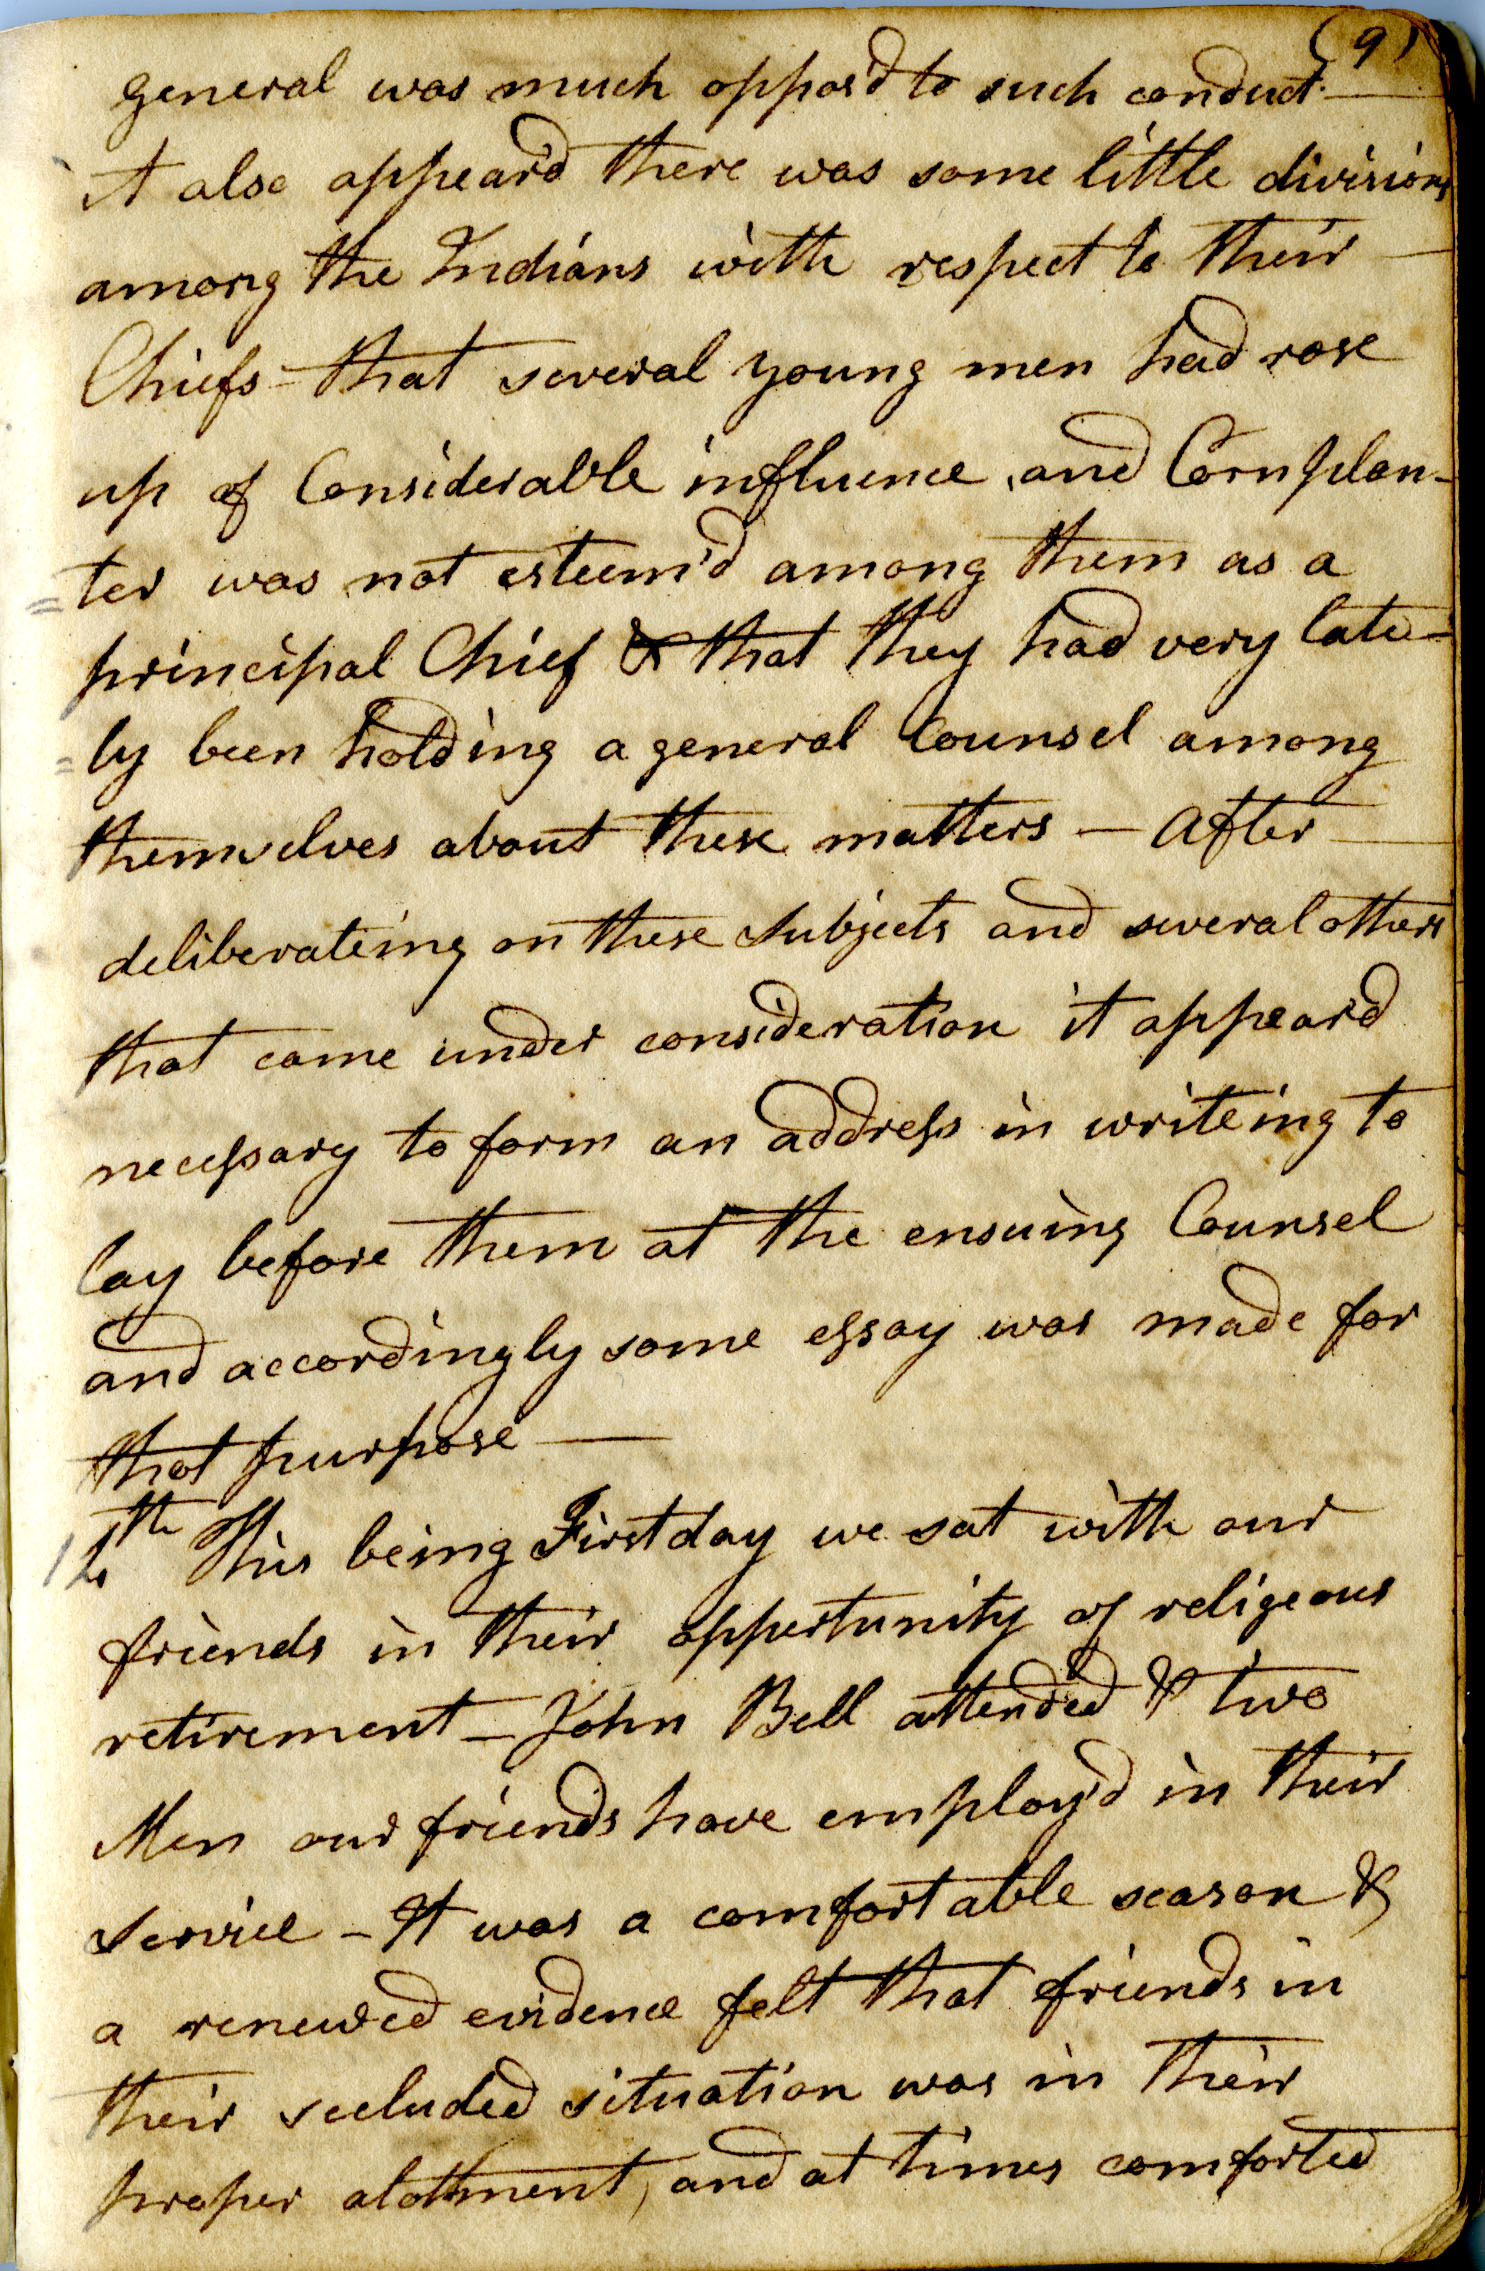 (9)
general was much oppos'd to such conduct —
it also appear'd there was some little divisions
among the Indians with respect to their —
Chiefs - that several young men had rose
up of Considerable influence, and Cornplan-
= ter was not esteem'd among them as a
principal Chief & that they had very late-
= ly been holding a general Counsel among
themselves about these matters — After —
deliberateing on these Subjects and several others
that came under consideration it appear'd
necessary to form an address in writeing to
lay before them at the ensuing Counsel
and accordingly some essay was made for
that purpose —
12th This being First day we sat with our
friends in their oppertunity of religeous
retirement — John Bell attended & two
Men our friends have employ'd in their
Service - It was a comfortable season &
a renewed evidence felt that friends in
their secluded situation was in their
proper alottment, and at times comforted